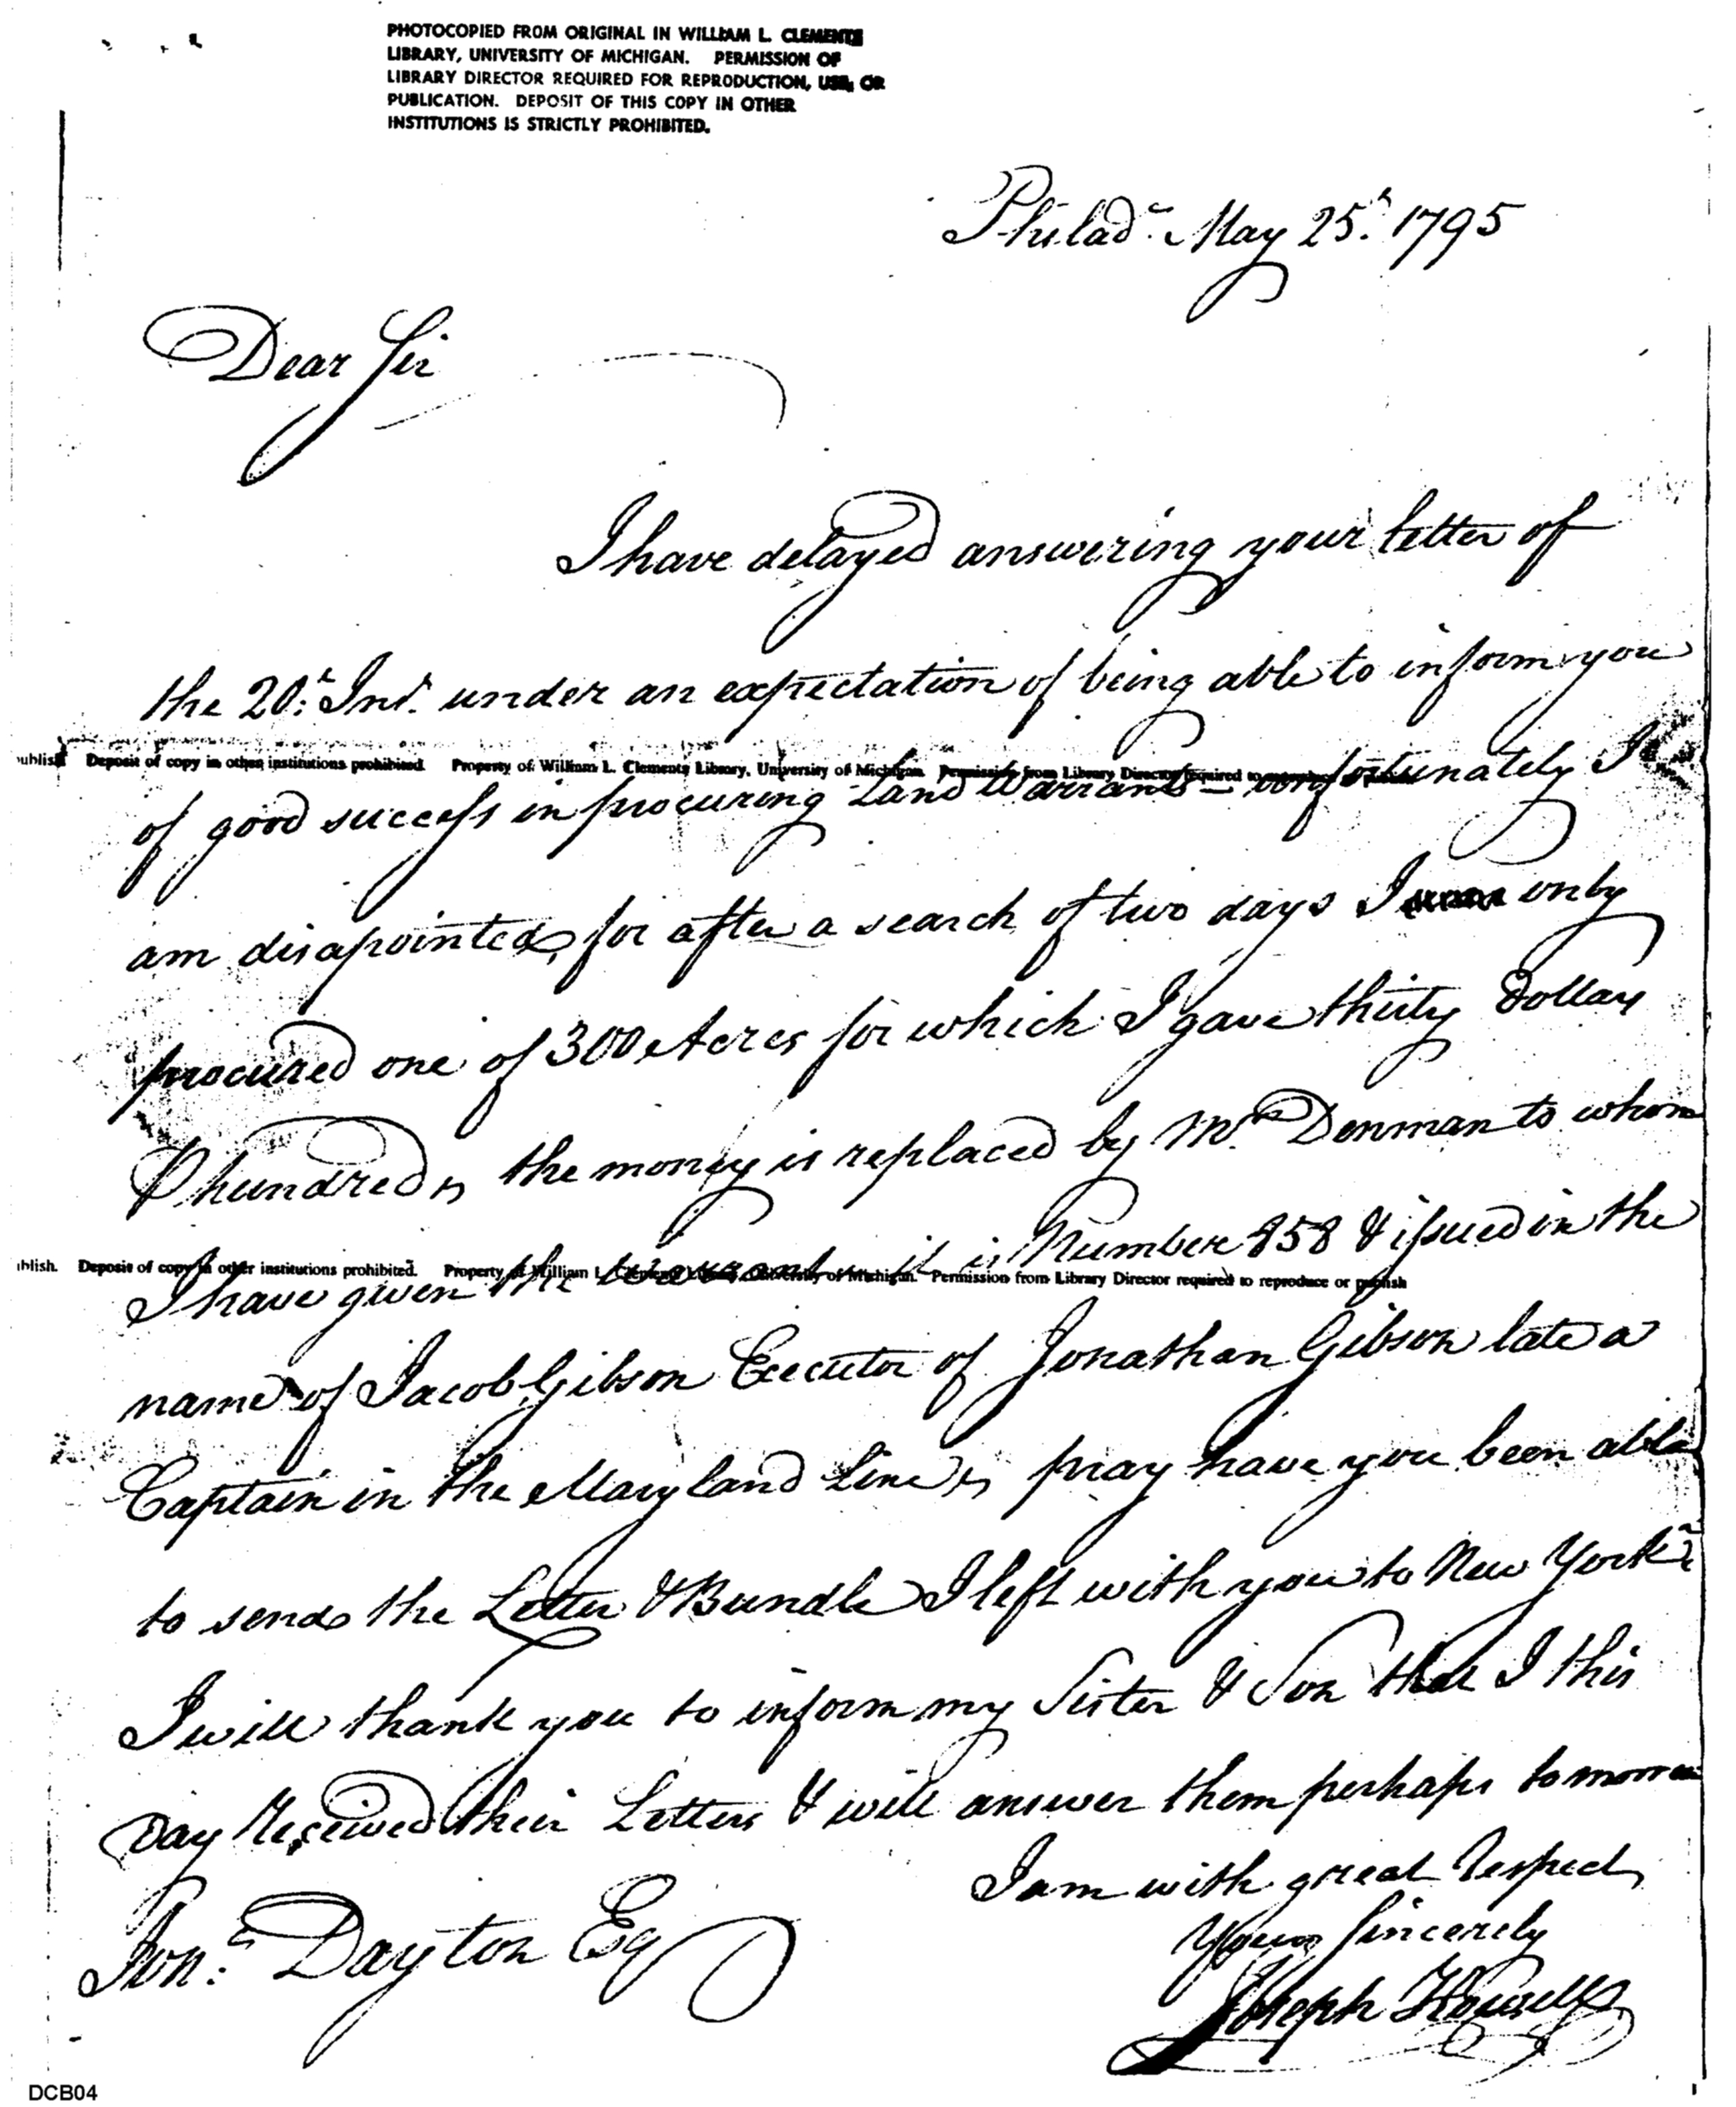 PHOTOCOPIED FROM ORIGINAL IN WILLIAM L. CLEMENTS
LIBRARY, UNIVERSITY OF MICHIGAN. PERMISSION OF
LIBRARY DIRECTOR REQUIRED FOR REPRODUCTION, USE, OR
PUBLICATION. DEPOSIT OF THIS COPY IN OTHER
INSTITUTIONS IS STRICTLY PROHIBITED.
Philada. May 25th. 1795
Dear Sir
I have delayed answering your letter of
the 20th. Inst. under an expectation of being able to inform you
ublish Deposit of copy in other institutions prohibited. Property of William L. Clements Library, University of Michigan. Permission from Library Director required to
of good success in procuring Land Warrants — unfortunately I
am disapointed, for after a search of two days I only
procured one of 300 Acres for which I gave thirty Dollars
P hundred, the money is replaced by Mr. Denman to whom
ublish. Deposit of copy in other institutions prohibited. Property of William L. Clements Library, University of Michigan. Permission from Library Director required to reproduce or publish
I have given the warrant it is Number 858 & issued in the
name of Jacob Gibson Executor of Jonathan Gibson late a
Captain in the Maryland Line, pray have you been able
to send the Letter & Bundle I left with you to New York?
I will thank you to inform my Sister & Son that I this
Day Received their Letters & will answer them perhaps tomorrow
I am with great Respect
Yours Sincerely
Joseph Howell
Jona: Dayton Esq
DCB04